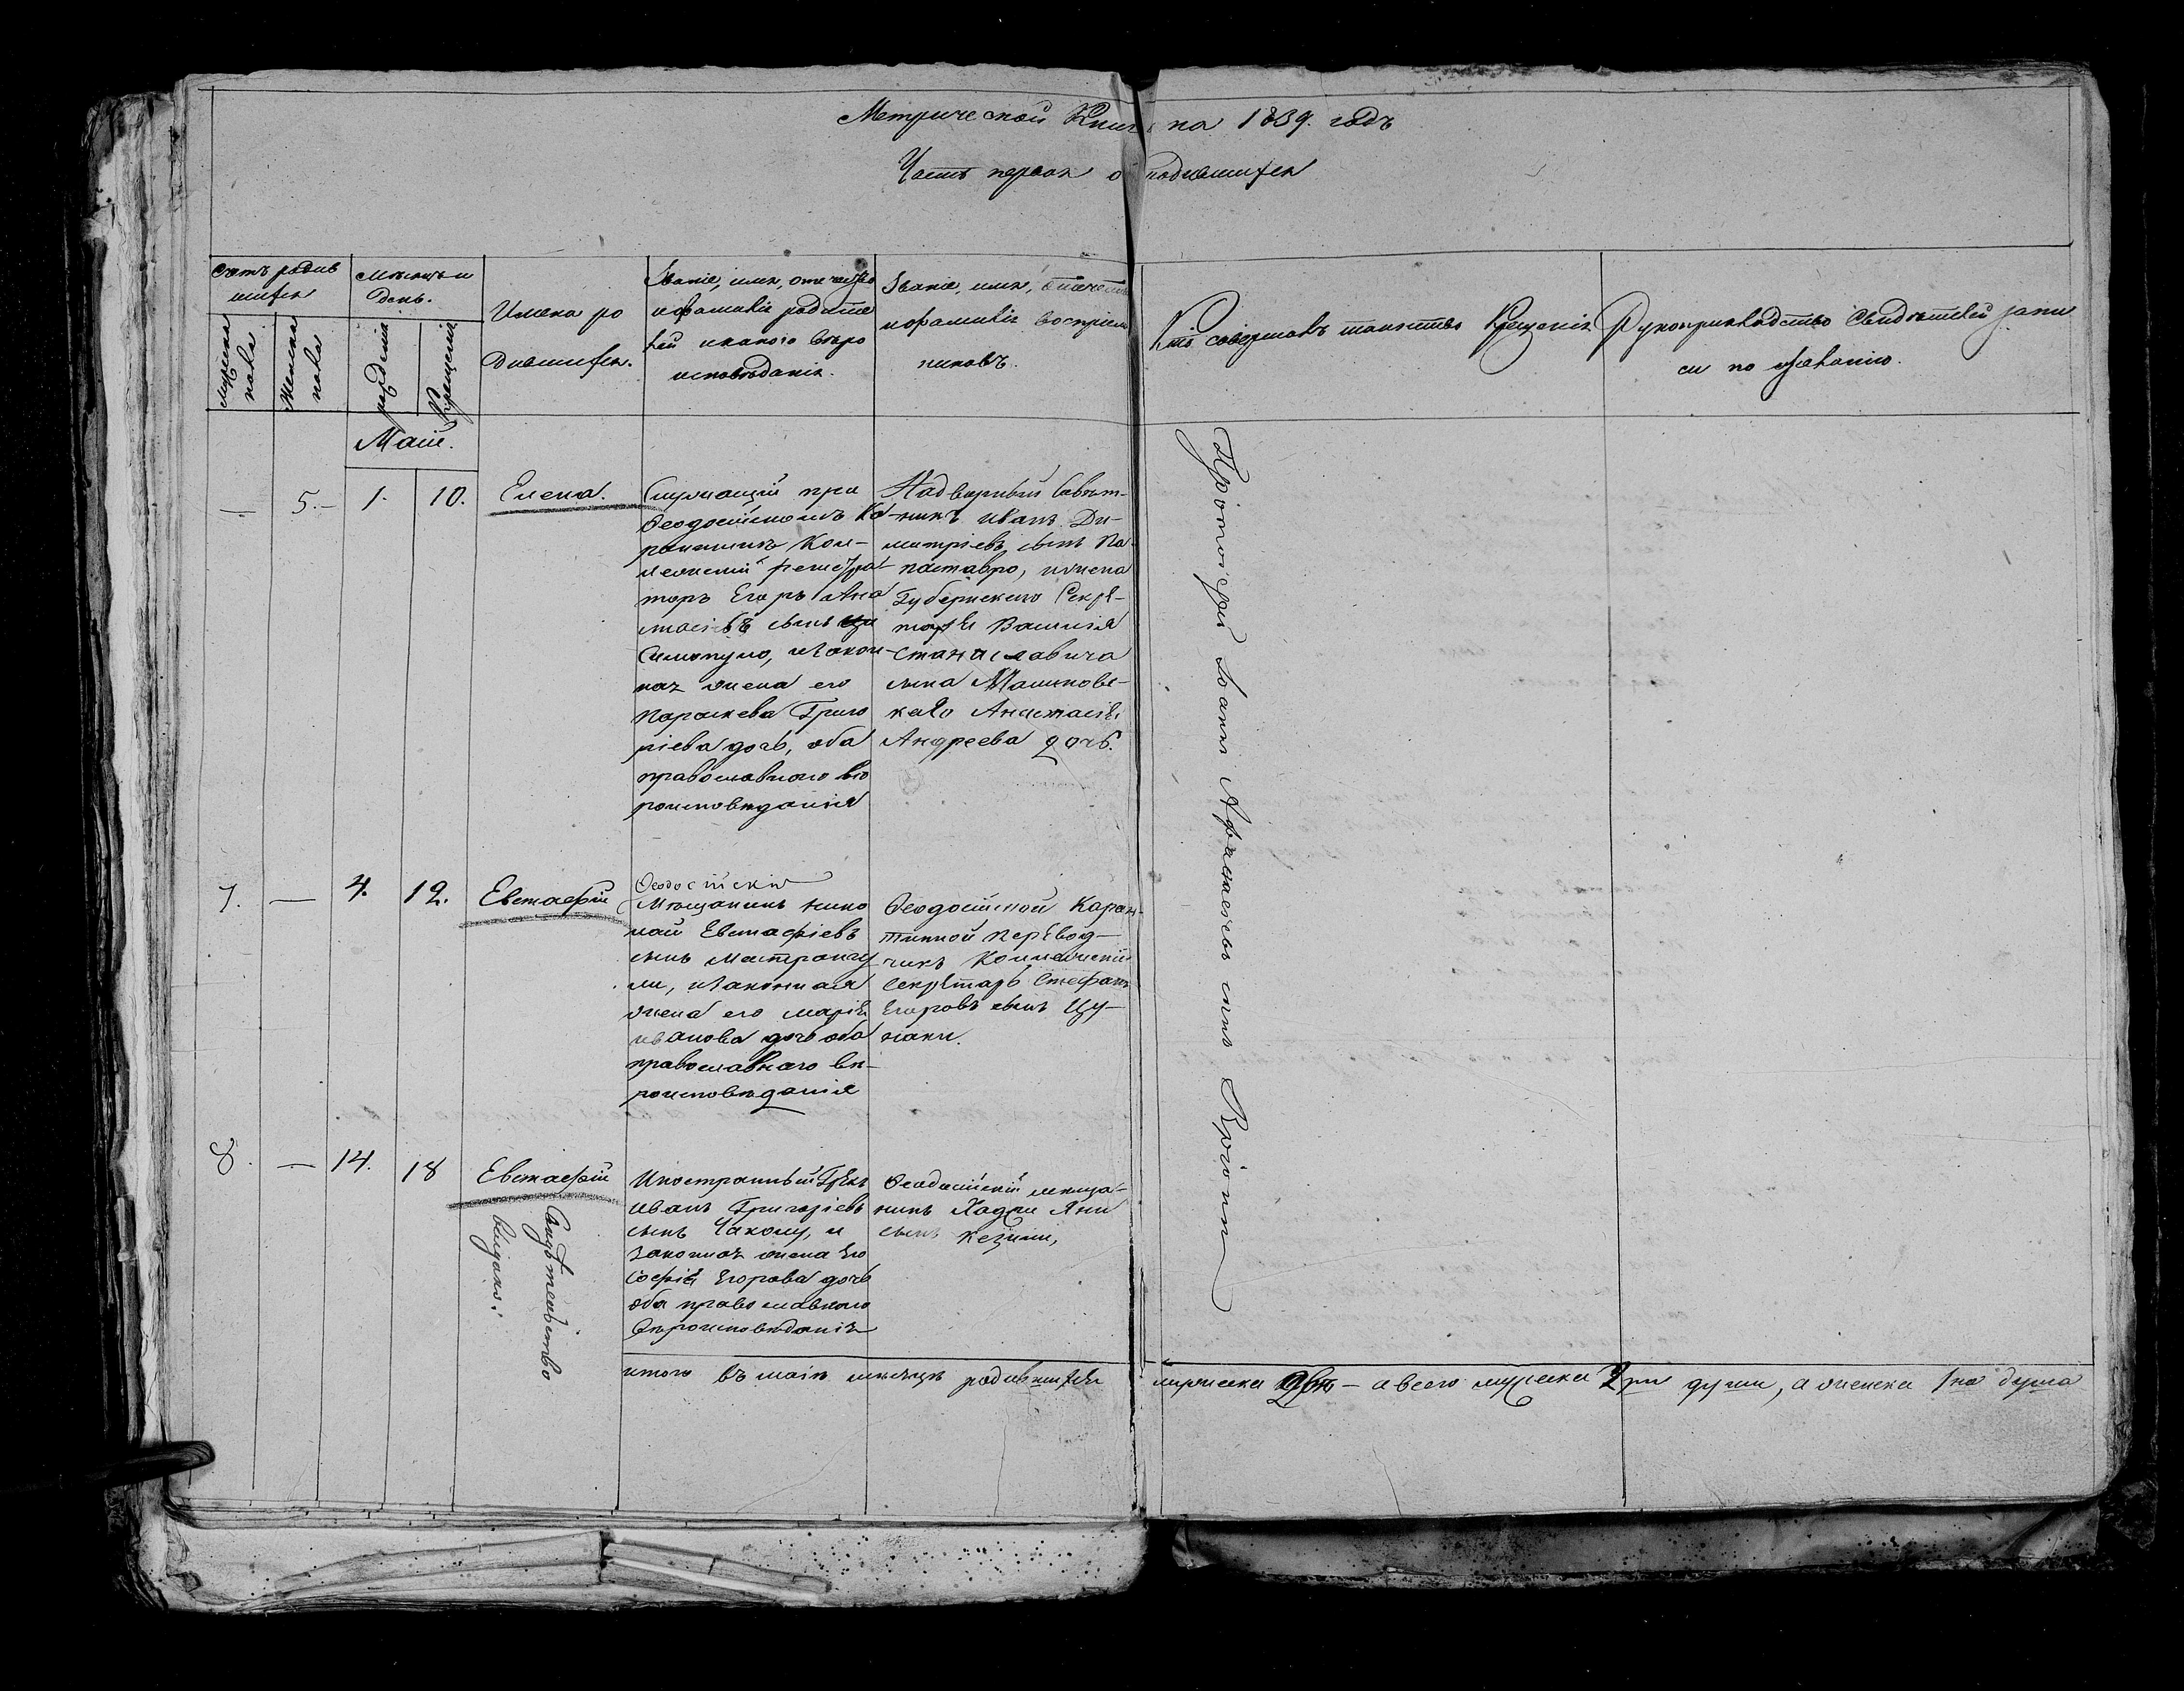 Метрической Книги на 1839. годъ
Часть первая о родившихся
Счетъ родив
шихся
Мѣсяцъ и
день.
Мужеска
пола
Женска
пола
рожденія
Крещенія
Имена ро
дившихся.
Званіе, имя, отчество
и фамилія родите
лей и какого вѣро
исповѣданія.
Званіе, имя, отчество
и фамилія воспріем
никовъ.
Кто совершалъ таинство Крещенія
Рукоприкладство свидѣтелей запи
си по желанію.
Маій.
—. 5.— 1. 10. Елена.
Служащій при
Ѳеодосійскомъ Ка
рантинѣ Кол-
лежскій регистра
торъ Егоръ Ана
стасіевъ сынъ
Симопуло, и закон-
ная жена его
Параскева Григо
ріева дочь, оба
православнаго вѣ
роисповѣданія
Надворный Совѣт-
никъ Иванъ Ди-
митріевъ сынъ Па-
паставро, и жена
Губернскаго Секре-
таря Василія
Станиславича
сына
Анастасія
Андреева дочь.
7. — 4. 12. Евстафій
Ѳеодосійскій
Мѣщанинъ Нико
лай Евстафіевъ
сынъ Мастрангу
ли, и законная
жена его Марія
Иванова дочь оба
православнаго вѣ-
роисповѣданія
Ѳеодосійской Каран-
тинной перевод-
чикъ Коллежскій
Секретарь Стефанъ
Егоровъ сынъ Цу-
наки.
8. — 14. 18 Евстафій
Свидѣтельство
видано.
Иностранный Грекъ
Иванъ Григоріевъ
сынъ Чакому, и
законная жена его
Софія Егорова дочь
оба православнаго
Вѣроисповѣданія
Ѳеодосійскій мѣща-
нинъ Хаджи Яни
сынъ
Протоіерей Іоаннъ Афанасіевъ сынъ Кріонъ
итого въ маіѣ мѣсяцѣ родившихся мужеска двѣ — а всего мужеска 2ри души, а женска 1на душа